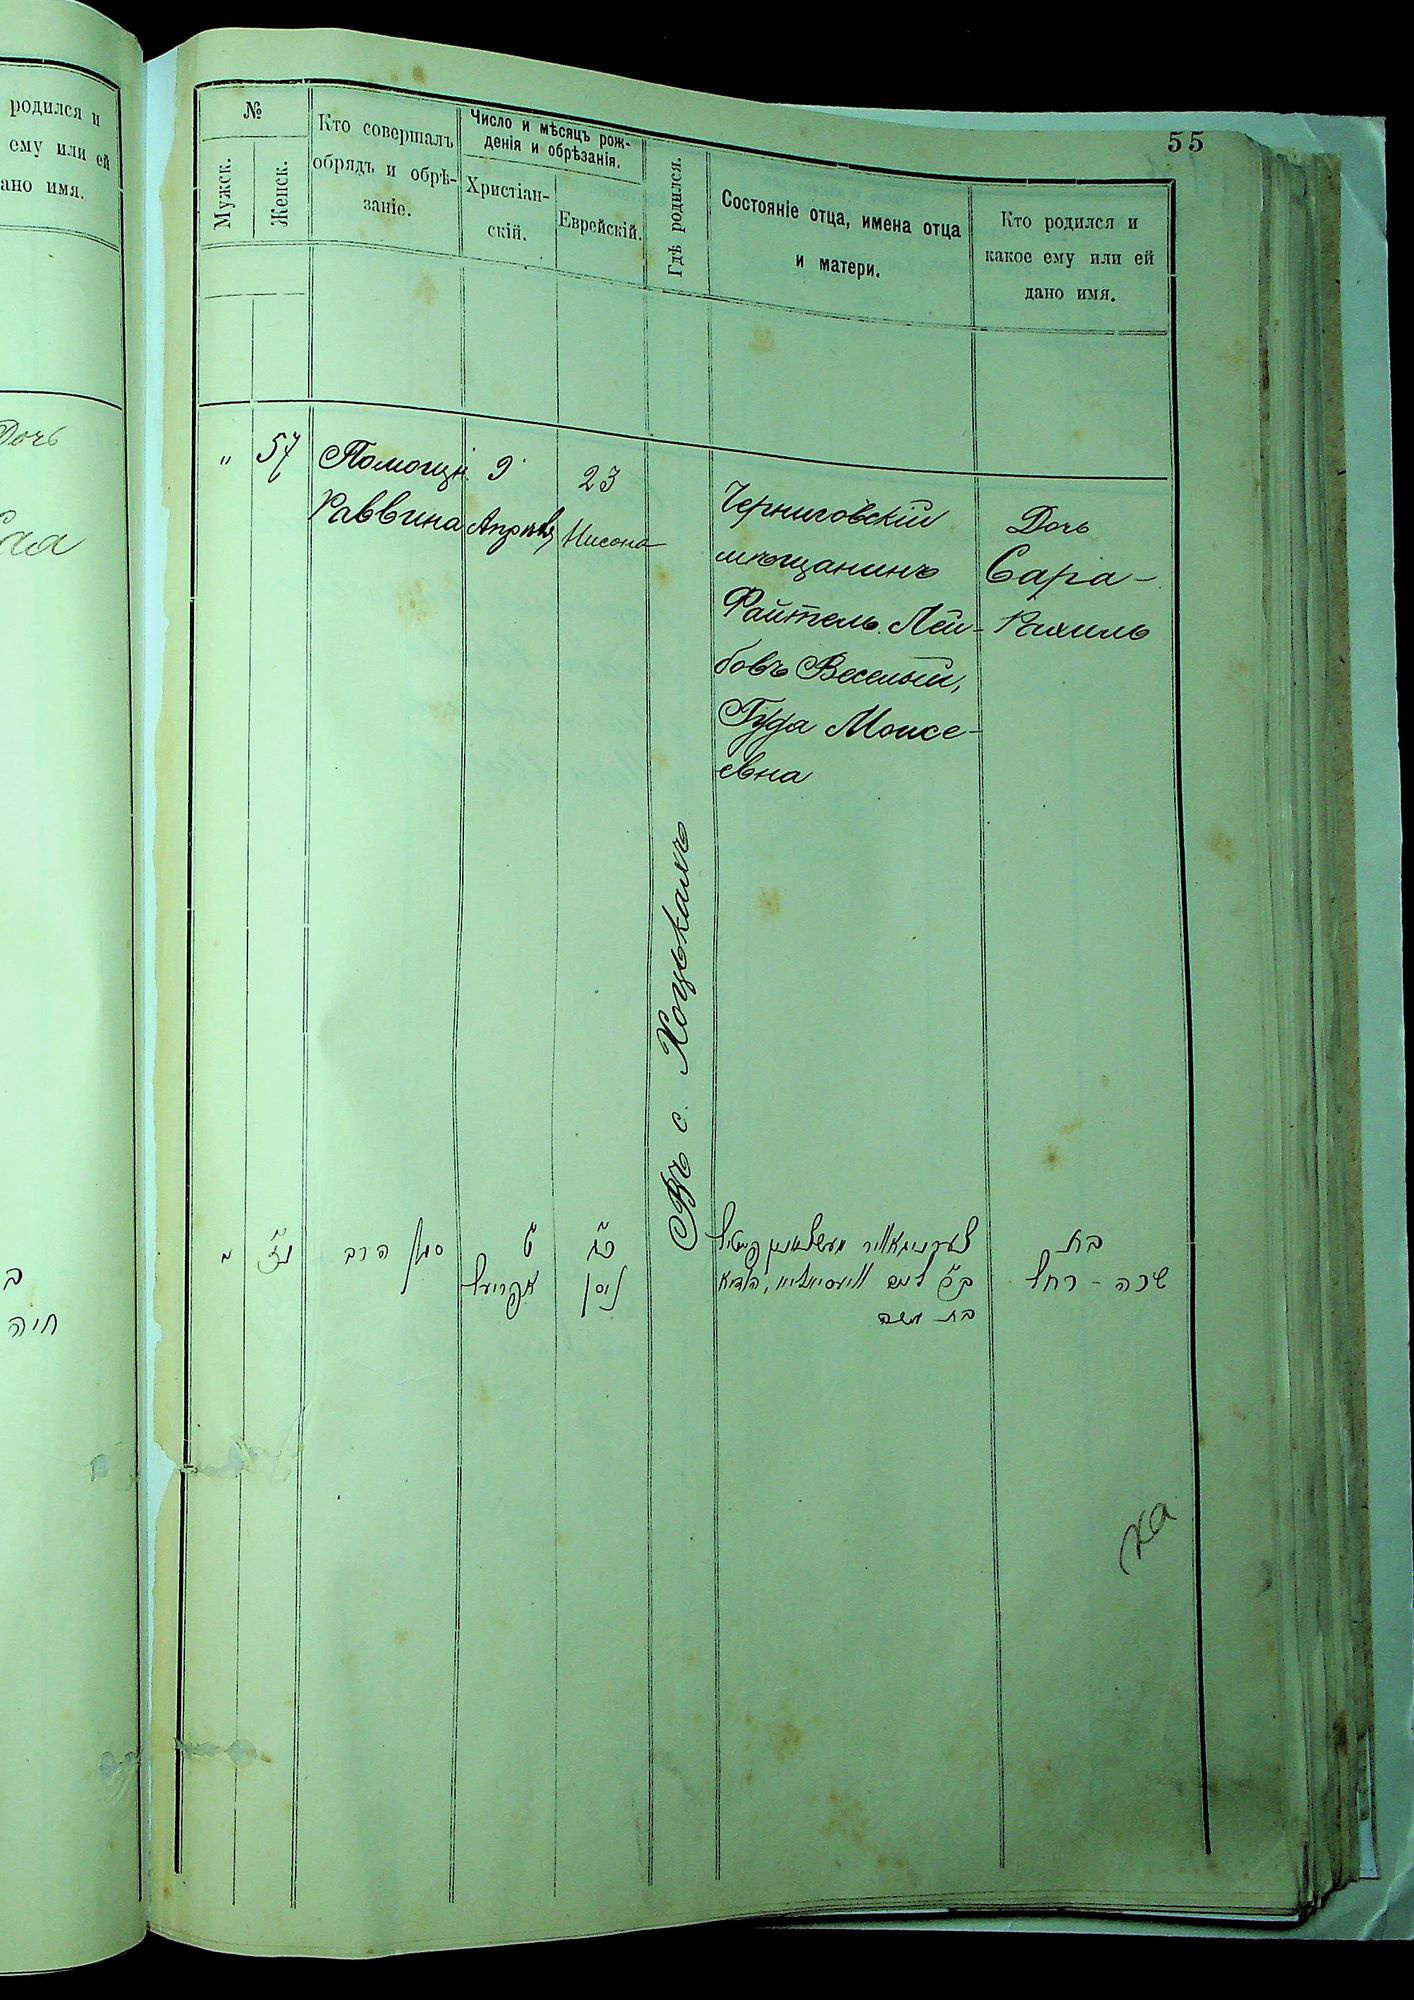 родился и
ему или ей
ано имя.
Дочь
ב
חיה
55
№
Мужск.
Женск.
Кто совершалъ
обрядъ и обрѣ-
заніе.
Число и мѣсяцъ рож-
денія и обрѣзанія.
Христіан-
скій.
Еврейскій.
Гдѣ родился.
Состояніе отца, имена отца
и матери.
Кто родился и
какое ему или ей
дано имя.
„
57
Помощн.
Раввина
9
Апрѣля
23
Нисона
Въ с. Хоцькахъ
Черниговскій
мѣщанинъ
Файтель Лей-
бовъ Веселый,
Гуда Моисе-
евна
Дочь
Сара-
Рахиль
„
נז
סגן הרב
ט
אפריעל
כג
ניסן
בת משה
בת
שרה - רחל